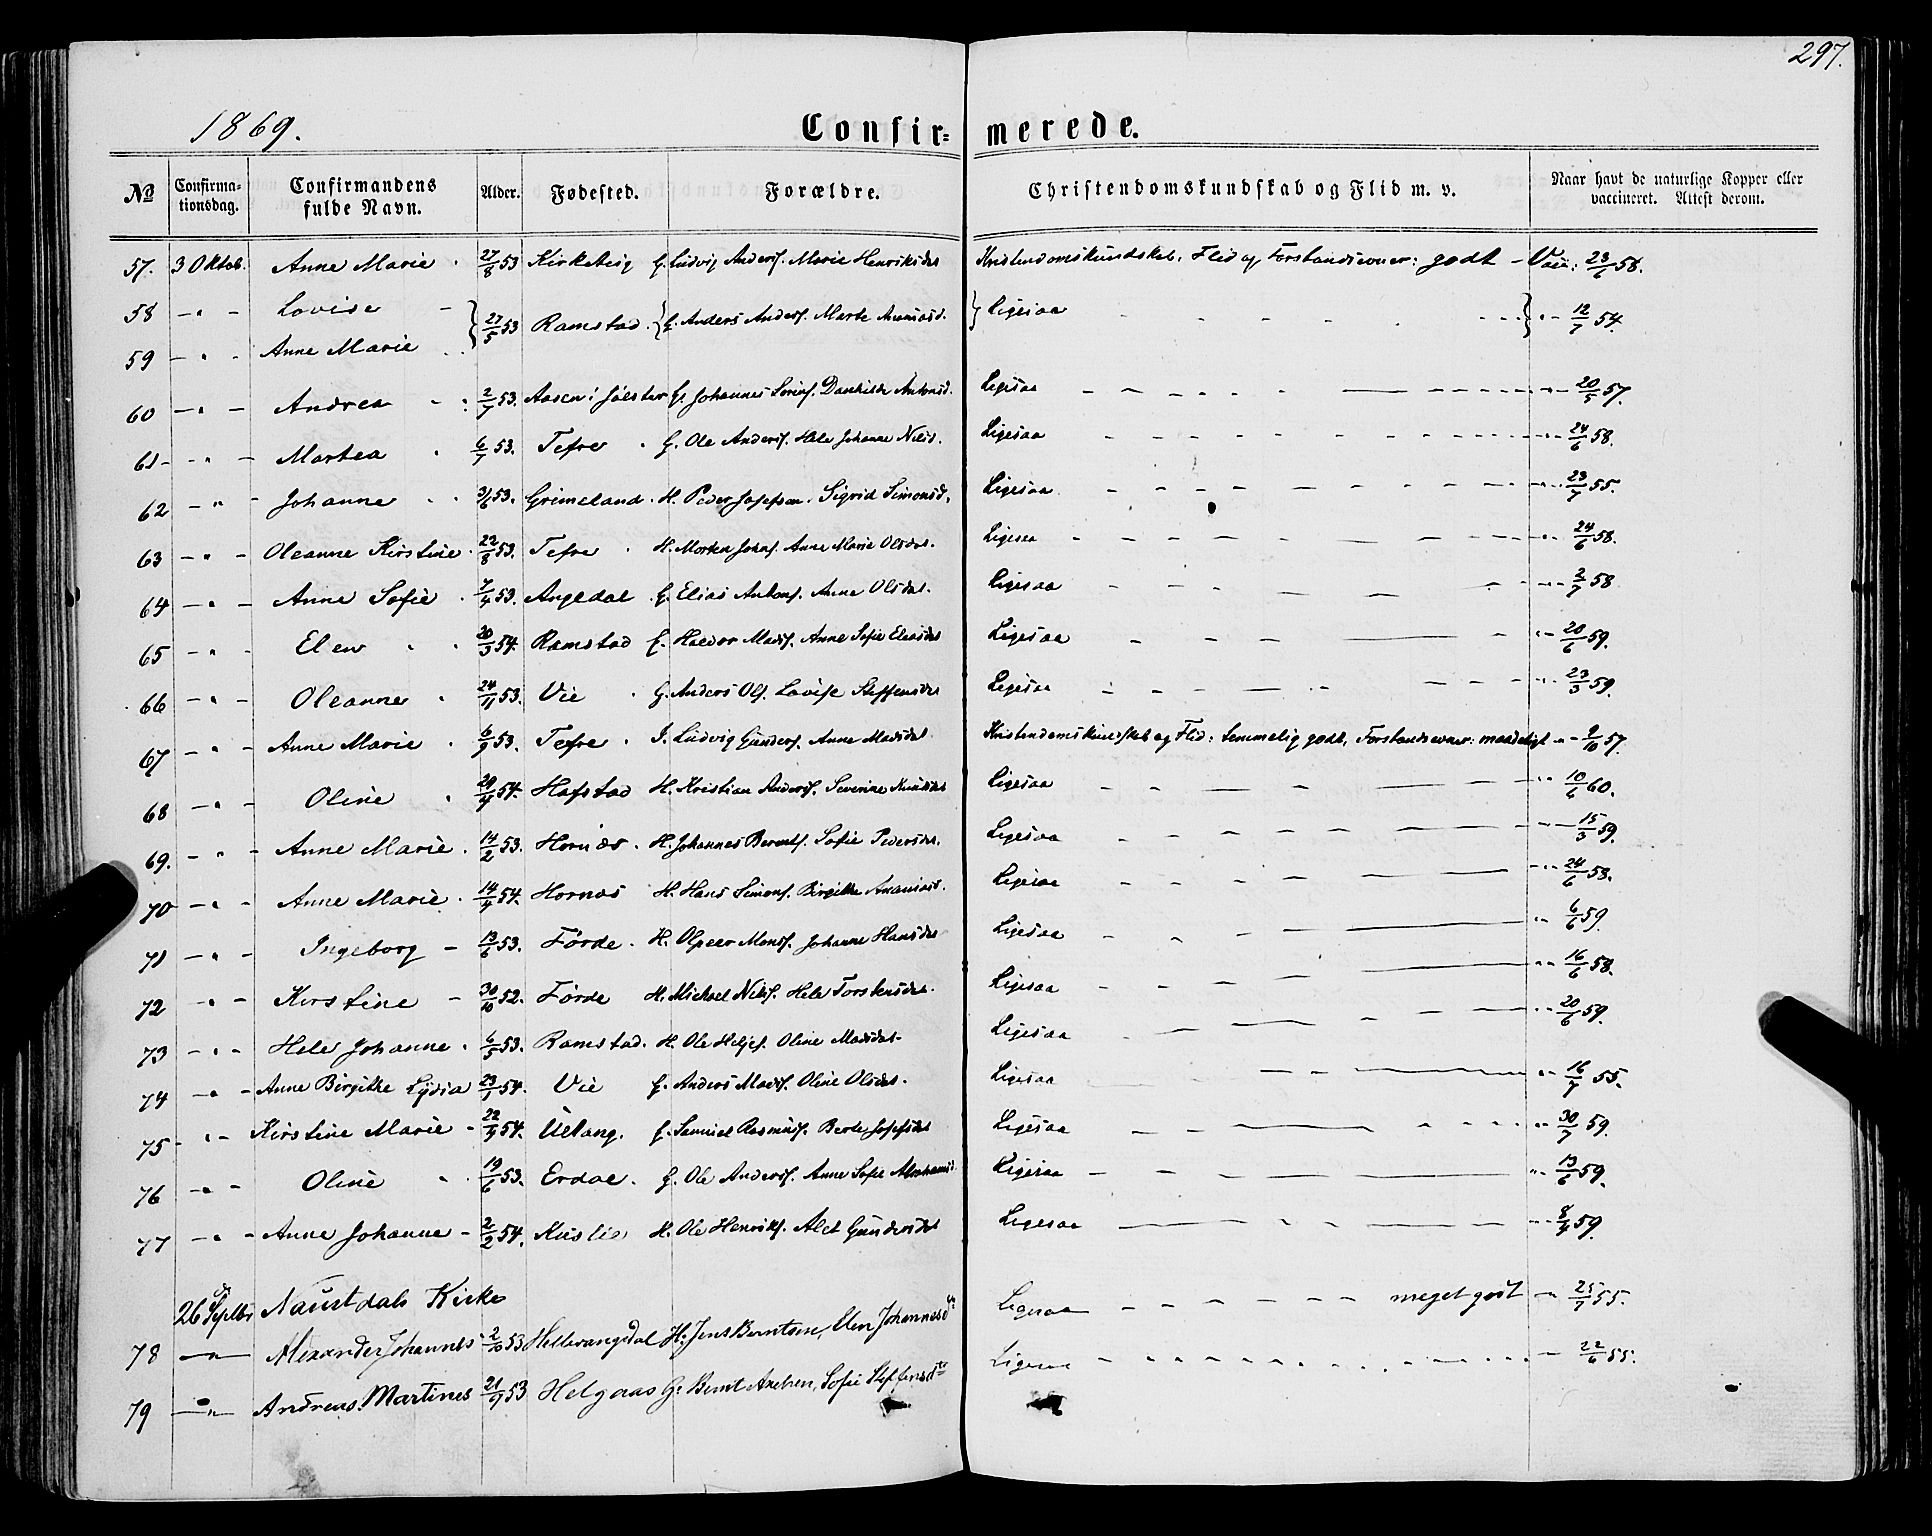 297.
1869. Confir= merede.
№ Confirma-tionsdag. Confirmandens fulde Navn. Alder. Fødested. Forældre. Christendomskundskab og Flid m. v. Naar havt de naturlige Kopper eller vaccineret. Attest derom.
57. 3 Oktob. Anne Marie 27/8 53 Kirketeig G. Ludvig Anders. Marie Henriksdat Kristendomskundskab, Flid og Forstandsevner: godt - Vac: 23/6 58.
58 - " - Lovise - } 27/5 53 Ramstad { G. Anders Anders. Marte Ananiasd. } Ligesaa - - } " - 12/7 54.
59 - " - Anne Marie
60 - " - Andrea 2/7 53. Aasen i Jølster G. Johannes Sørens. Antonsd. Ligesaa - - " - 20/5 57.
61 - " - Martea 6/7 53. Tefre G. Ole Anders. Hele Johanne Nilsd. Ligesaa - - " - 24/6 58.
62 - " - Johanne 3/6 53. Grimeland H. Peder Josefsen. Sigrid Simonsd. Ligesaa - - " - 23/7 55.
63 - " - Oleanne Kirstine 22/8 53. Tefre H. Morten Johns. Anne Marie Olsdat. Ligesaa - - " - 24/6 58.
64 - " - Anne Sofie 7/4 53. Angedal G. Elias Antons. Anne Olsdat. Ligesaa - - " - 2/7 58
65 - " - Elen 20/3 54. Ramstad Mads. Anne Sofie Eliasdat Ligesaa - - " - 20/6 59.
66 - " - Oleanne 24/11 53. Vie G. Anders Ols. Lovise Steffensdat Ligesaa - - " - 23/3 59.
67 - " - Anne Marie 6/9 53. Tefre I. Ludvig Gunders. Anne Madsdat Kristendomskundskab og Flid: temmelig godt, Forstandsevner: maadeligt " - 9/10 57.
68 - " - Oline 54. Hafstad H. Kristian Anders. Severine Ligesaa - - " - 10/6 60.
69. - " - Anne Marie 14/2 53. Hornæs H. Johannes Bernts. Sofie Pedersdat. Ligesaa - - " - 15/3 59.
70 - " - Anne Marie 14/4 54. Hornæs H. Hans Simons. Birgithe Ananiasd. Ligesaa - - " - 24/6 53.
71 - " - Ingeborg - 13/6 53. Førde H. Olpeer Mons. Johanne Hansdat Ligesaa - - " - 6/6 59.
72 " - Kirstine - 30/10 52. Førde H. Michael Nils. Hele Torstensdat. Ligesaa - - " - 16/6 58.
73 - " - Hele Johanne 6/5 53. Ramstad. H. Ole Heljes. Oline Madsdat. Ligesaa - - " - 20/6 59.
74 - " - Anne Birgithe Lydia 23/1 54. Vie G. Anders Mads. Oline Olsdat. Ligesaa - - " - 16/7 55.
75 - " - Kirstine Marie - 22/4 54. Ullang. Samuel Rasmus. Berte Josefsdat Ligesaa - - " - 30/7 59.
76 - " - Oline 19/6 53. Erdal. G. Ole Anders. Anne Sofie Abrahamsd. Ligesaa - - " - 13/6 59.
77 - " - Anne Johanne - 2/2 54. Kuslie H. Ole Henriks. Alet Gundersdat Ligesaa - - " - 8/4 59.
26de Septbr Naustdals Kirke
78 - " - Alexander Johannes 2/10 53 Hellevangsdal H: Jens Berntsen, Elen Johannesdtr Ligesaa - - meget godt - 25/7 55.
79 - " - Andreas Martines 21/9 53 Helgaas G: Bernt Axelsen, Sofie Steffensdtr Ligesaa - - 22/6 55.